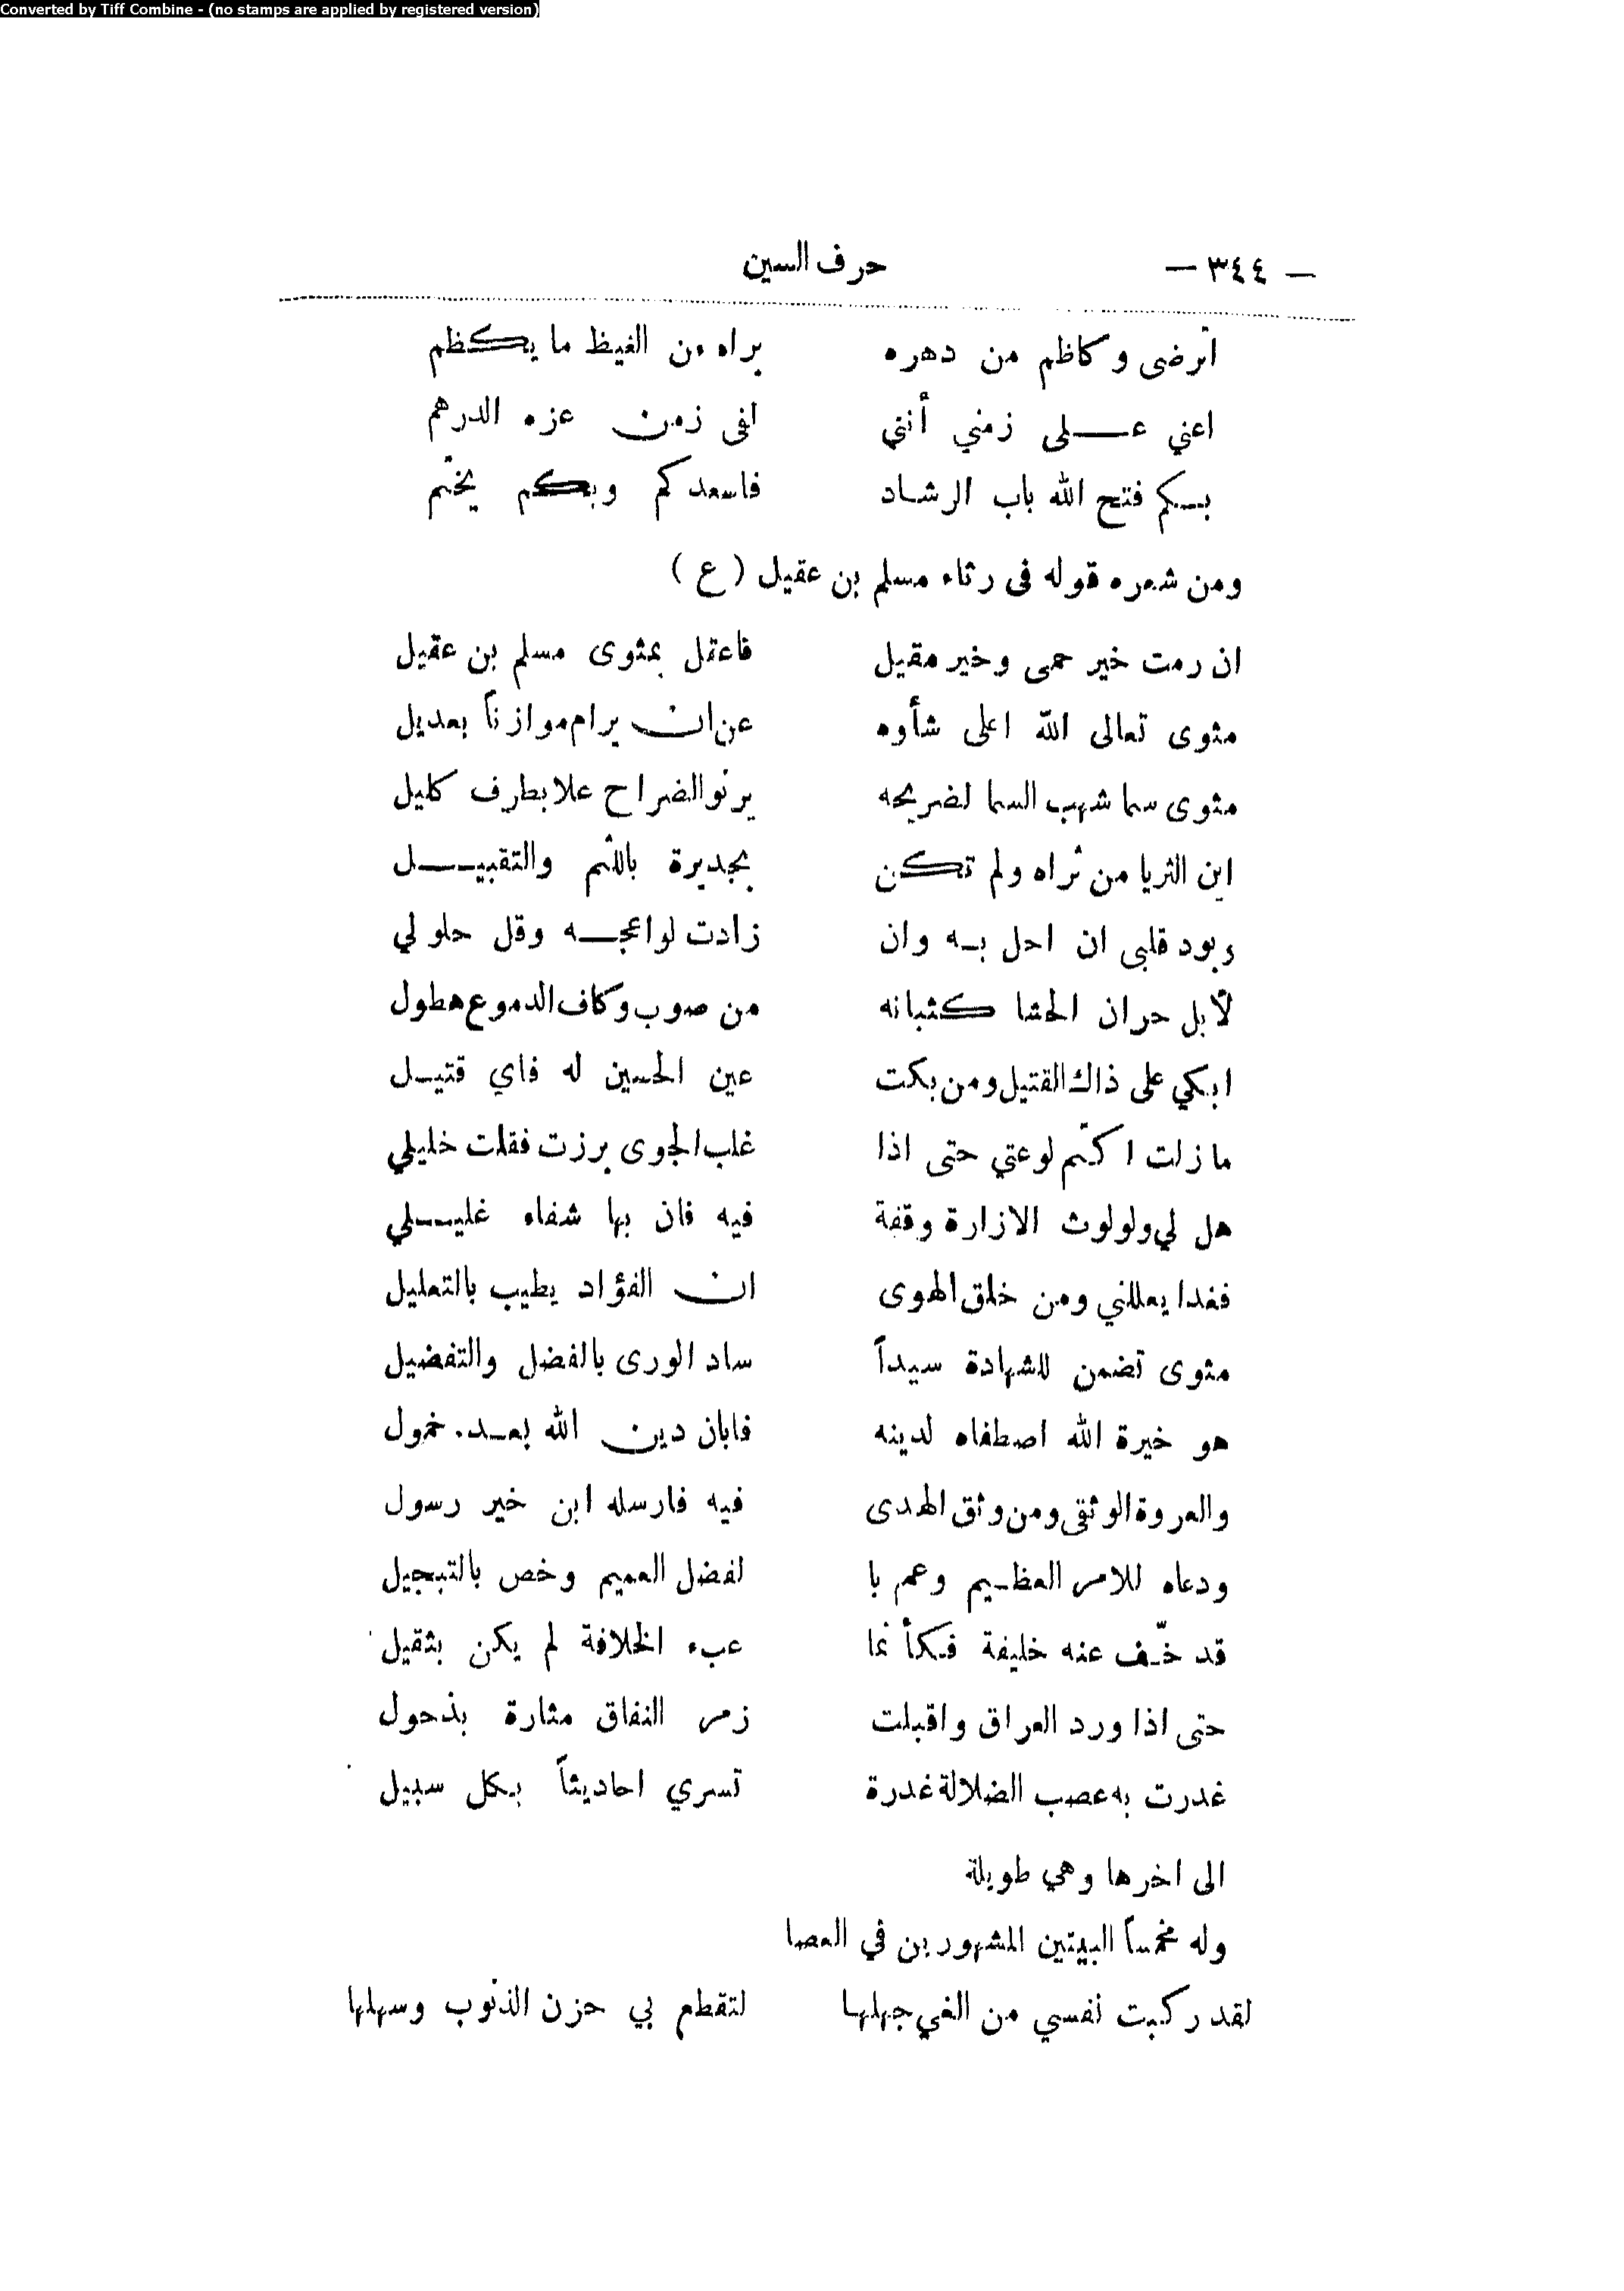 Converted by Tiff Combine - (no stamps are applied by registered version)
— ٣٤٤ — حرف السين
أترضى وكاظم من دهره براه من الغيظ ما يكظم
اعني عـلى زمني أنني لفى زمن عزه الدرهم
بـكم فتح الله باب الرشـاد فاسعدكم وبكم يختم
ومن شعره قوله فى رثاء مسلم بن عقيل (ع)
ان رمت خير حمى وخير مقيل فاعقل بمثوى مسلم بن عقيل
مثوى تعالى الله اعلى شأوه عن ان يرام موازناً بعديل
مثوى سما شهب السما لضريحه يرنو الضراح علا بطرف كليل
اين الثريا من ثراه ولم تكن بجديرة باللثم والتقبيـل
وبود قلبى ان احل بـه وان زادت لواعجـه وقل حلولي
لأبل حران الحشا كثبانه من صوب وكاف الدموع هطول
ابكي على ذاك القتيل ومن بكت عين الحسين له فاي قتيـل
ما زلت اكتم لوعتي حتى اذا غلب الجوى برزت فقلت خليلي
هل لي ولو لوث الازارة وقفة فيه فان بها شفاء غليـلي
فغدا يعللني ومن خلق الهوى ان الفؤاد يطيب بالتعليل
مثوى تضمن للشهادة سيداً ساد الورى بالفضل والتفضيل
هو خيرة الله اصطفاه لدينه فابان دين الله بعـد خمول
والعروة الوثقى ومن وثق الهدى فيه فارسله ابن خير رسول
ودعاه للامر العظـيم وعم با لفضل العميم وخص بالتبجيل
قد خفّ عنه خليفة فكأنما عبء الخلافة لم يكن بثقيل
حتى اذا ورد العراق واقبلت زمر النفاق مثارة بذحول
غدرت به عصب الضلالة غدرة تسري احاديثاً بكل سبيل
الى اخرها وهي طويلة
وله مخمساً البيتين المشهورين في العصا
لقد ركبت نفسي من الغي جهلها لتقطع بي حزن الذنوب وسهلها